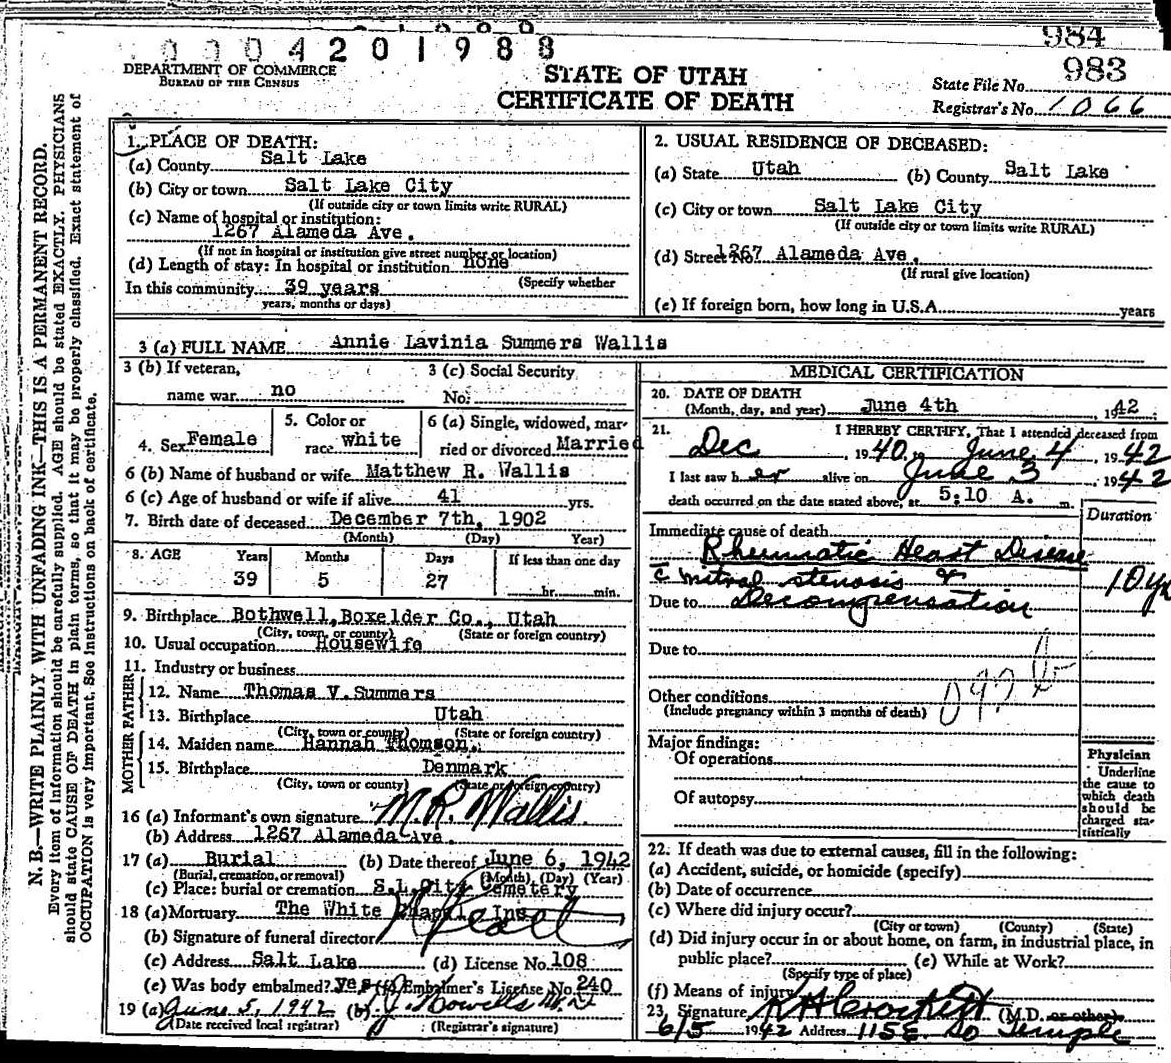 0004201988
984
983
DEPARTMENT OF COMMERCE
BUREAU OF THE CENSUS
STATE OF UTAH
CERTIFICATE OF DEATH
State File No.
Registrar's No. 1066
N. B.—WRITE PLAINLY WITH UNFADING INK—THIS IS A PERMANENT RECORD.
Every item of information should be carefully supplied. AGE should be stated EXACTLY. PHYSICIANS
should state CAUSE OF DEATH in plain terms, so that it may be properly classified. Exact statement of
OCCUPATION is very important. See instructions on back of certificate.
1. PLACE OF DEATH:
(a) County Salt Lake
(b) City or town Salt Lake City
(If outside city or town limits write RURAL)
(c) Name of hospital or institution:
1267 Alameda Ave.
(If not in hospital or institution give street number or location)
(d) Length of stay: In hospital or institution none
(Specify whether
In this community 39 years
years, months or days)
2. USUAL RESIDENCE OF DECEASED:
(a) State Utah (b) County Salt Lake
(c) City or town Salt Lake City
(If outside city or town limits write RURAL)
(d) Street No. 1267 Alameda Ave.
(If rural give location)
(e) If foreign born, how long in U.S.A. years
3 (a) FULL NAME Annie Lavinia Summers Wallis
3 (b) If veteran,
name war no
3 (c) Social Security
No.
4. Sex Female
5. Color or
race white
6 (a) Single, widowed, mar-
ried or divorced Married
6 (b) Name of husband or wife Matthew R. Wallis
6 (c) Age of husband or wife if alive 41 yrs.
7. Birth date of deceased December 7th, 1902
(Month) (Day) Year)
8. AGE Years Months Days If less than one day
39 5 27 hr. min.
9. Birthplace Bothwell, Boxelder Co., Utah
(City, town, or county) (State or foreign country)
10. Usual occupation Housewife
11. Industry or business
FATHER
12. Name Thomas V. Summers
13. Birthplace Utah
(City, town or county) (State or foreign country)
MOTHER
14. Maiden name Hannah Thomson
15. Birthplace Denmark
(City, town or county) (State or foreign country)
16 (a) Informant's own signature M. R. Wallis
(b) Address 1267 Alameda Ave.
17 (a) Burial (b) Date thereof June 6, 1942
(Burial, cremation, or removal) (Month), (Day) (Year)
(c) Place: burial or cremation S.L. City Cemetery
18 (a) Mortuary The White Chapel Inc
(b) Signature of funeral director
(c) Address Salt Lake (d) License No. 108
(e) Was body embalmed? yes (f) Embalmer's License No. 240
19 (a) June 5, 1942 (b)
(Date received local registrar) (Registrar's signature)
MEDICAL CERTIFICATION
20. DATE OF DEATH
(Month, day, and year) June 4th, 1942
21. I HEREBY CERTIFY, That I attended deceased from
Dec 1940, June 4, 1942
I last saw her alive on June 3, 1942
death occurred on the date stated above, at 5:10 A. m.
Duration
Immediate cause of death
Rheumatic Heart Disease
c mitral stenosis & 10 yr
Due to Decompensation
Due to
Other conditions
(Include pregnancy within 3 months of death)
Major findings:
Of operations
Of autopsy
Physician
Underline
the cause to
which death
should be
charged sta-
tistically
22. If death was due to external causes, fill in the following:
(a) Accident, suicide, or homicide (specify)
(b) Date of occurrence
(c) Where did injury occur?
(City or town) (County) (State)
(d) Did injury occur in or about home, on farm, in industrial place, in
public place? (e) While at Work?
(Specify type of place)
(f) Means of injury
23. Signature (M.D. or other)
6/5 1942 Address 115 E. So Temple